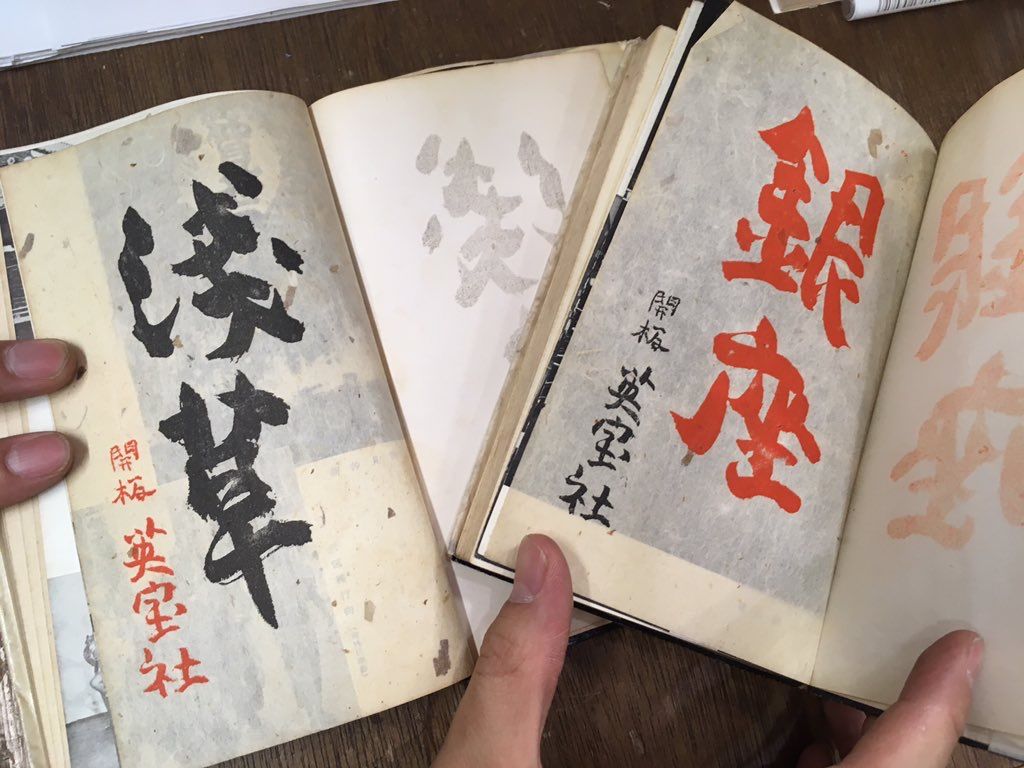 浅草
開板
英宝社
銀座
開板
英宝社